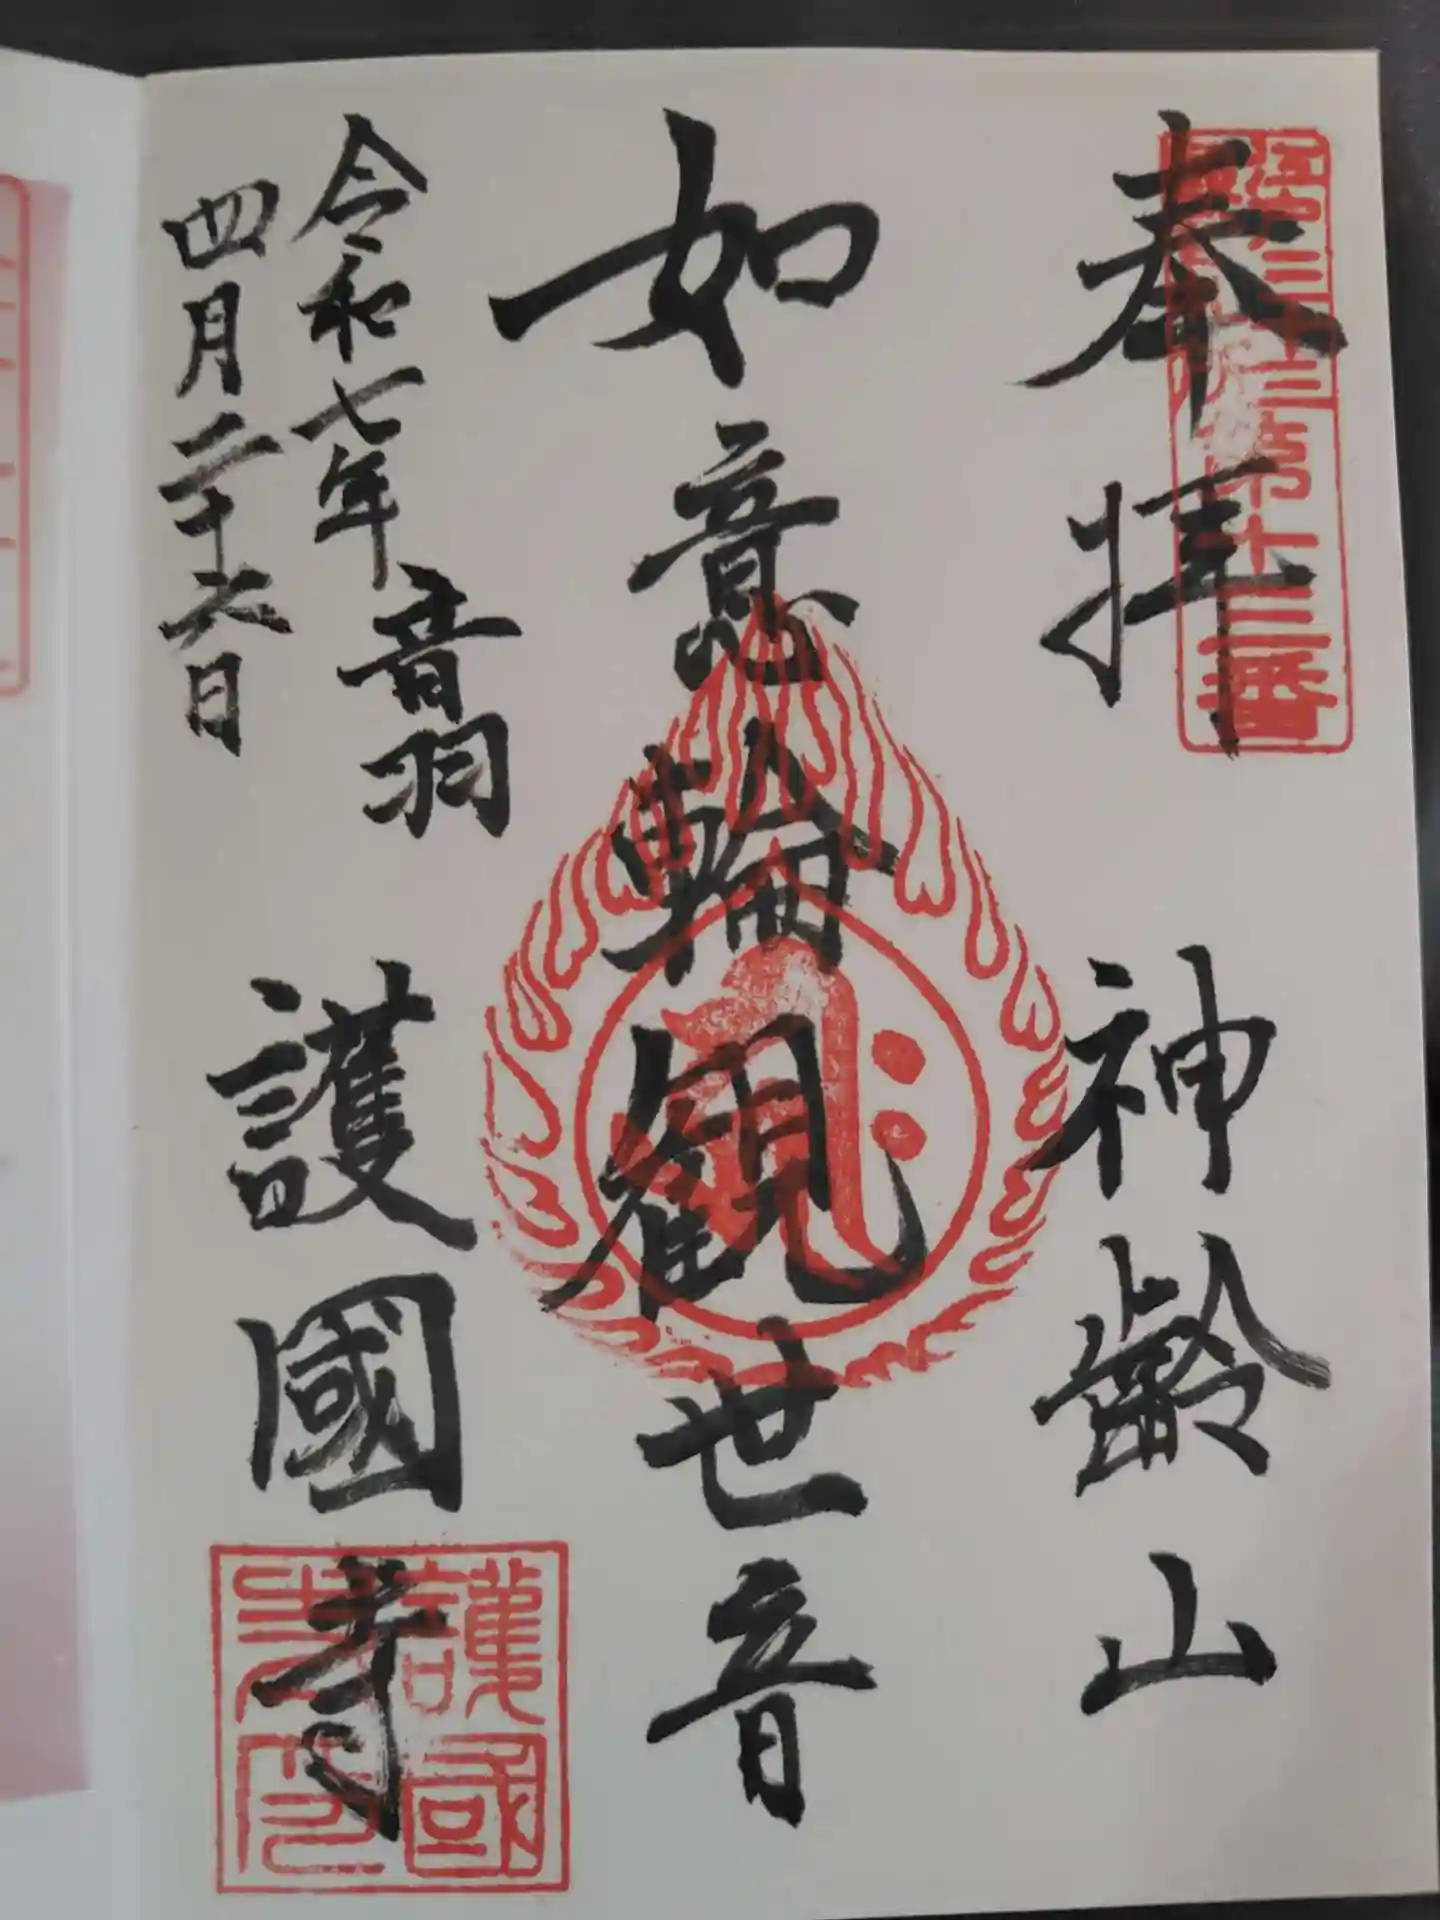 奉拝
神齢山
江戸三十三 第十三番
如意輪観世音
令和七年
四月二十六日
音羽
護國寺
護國
寺印